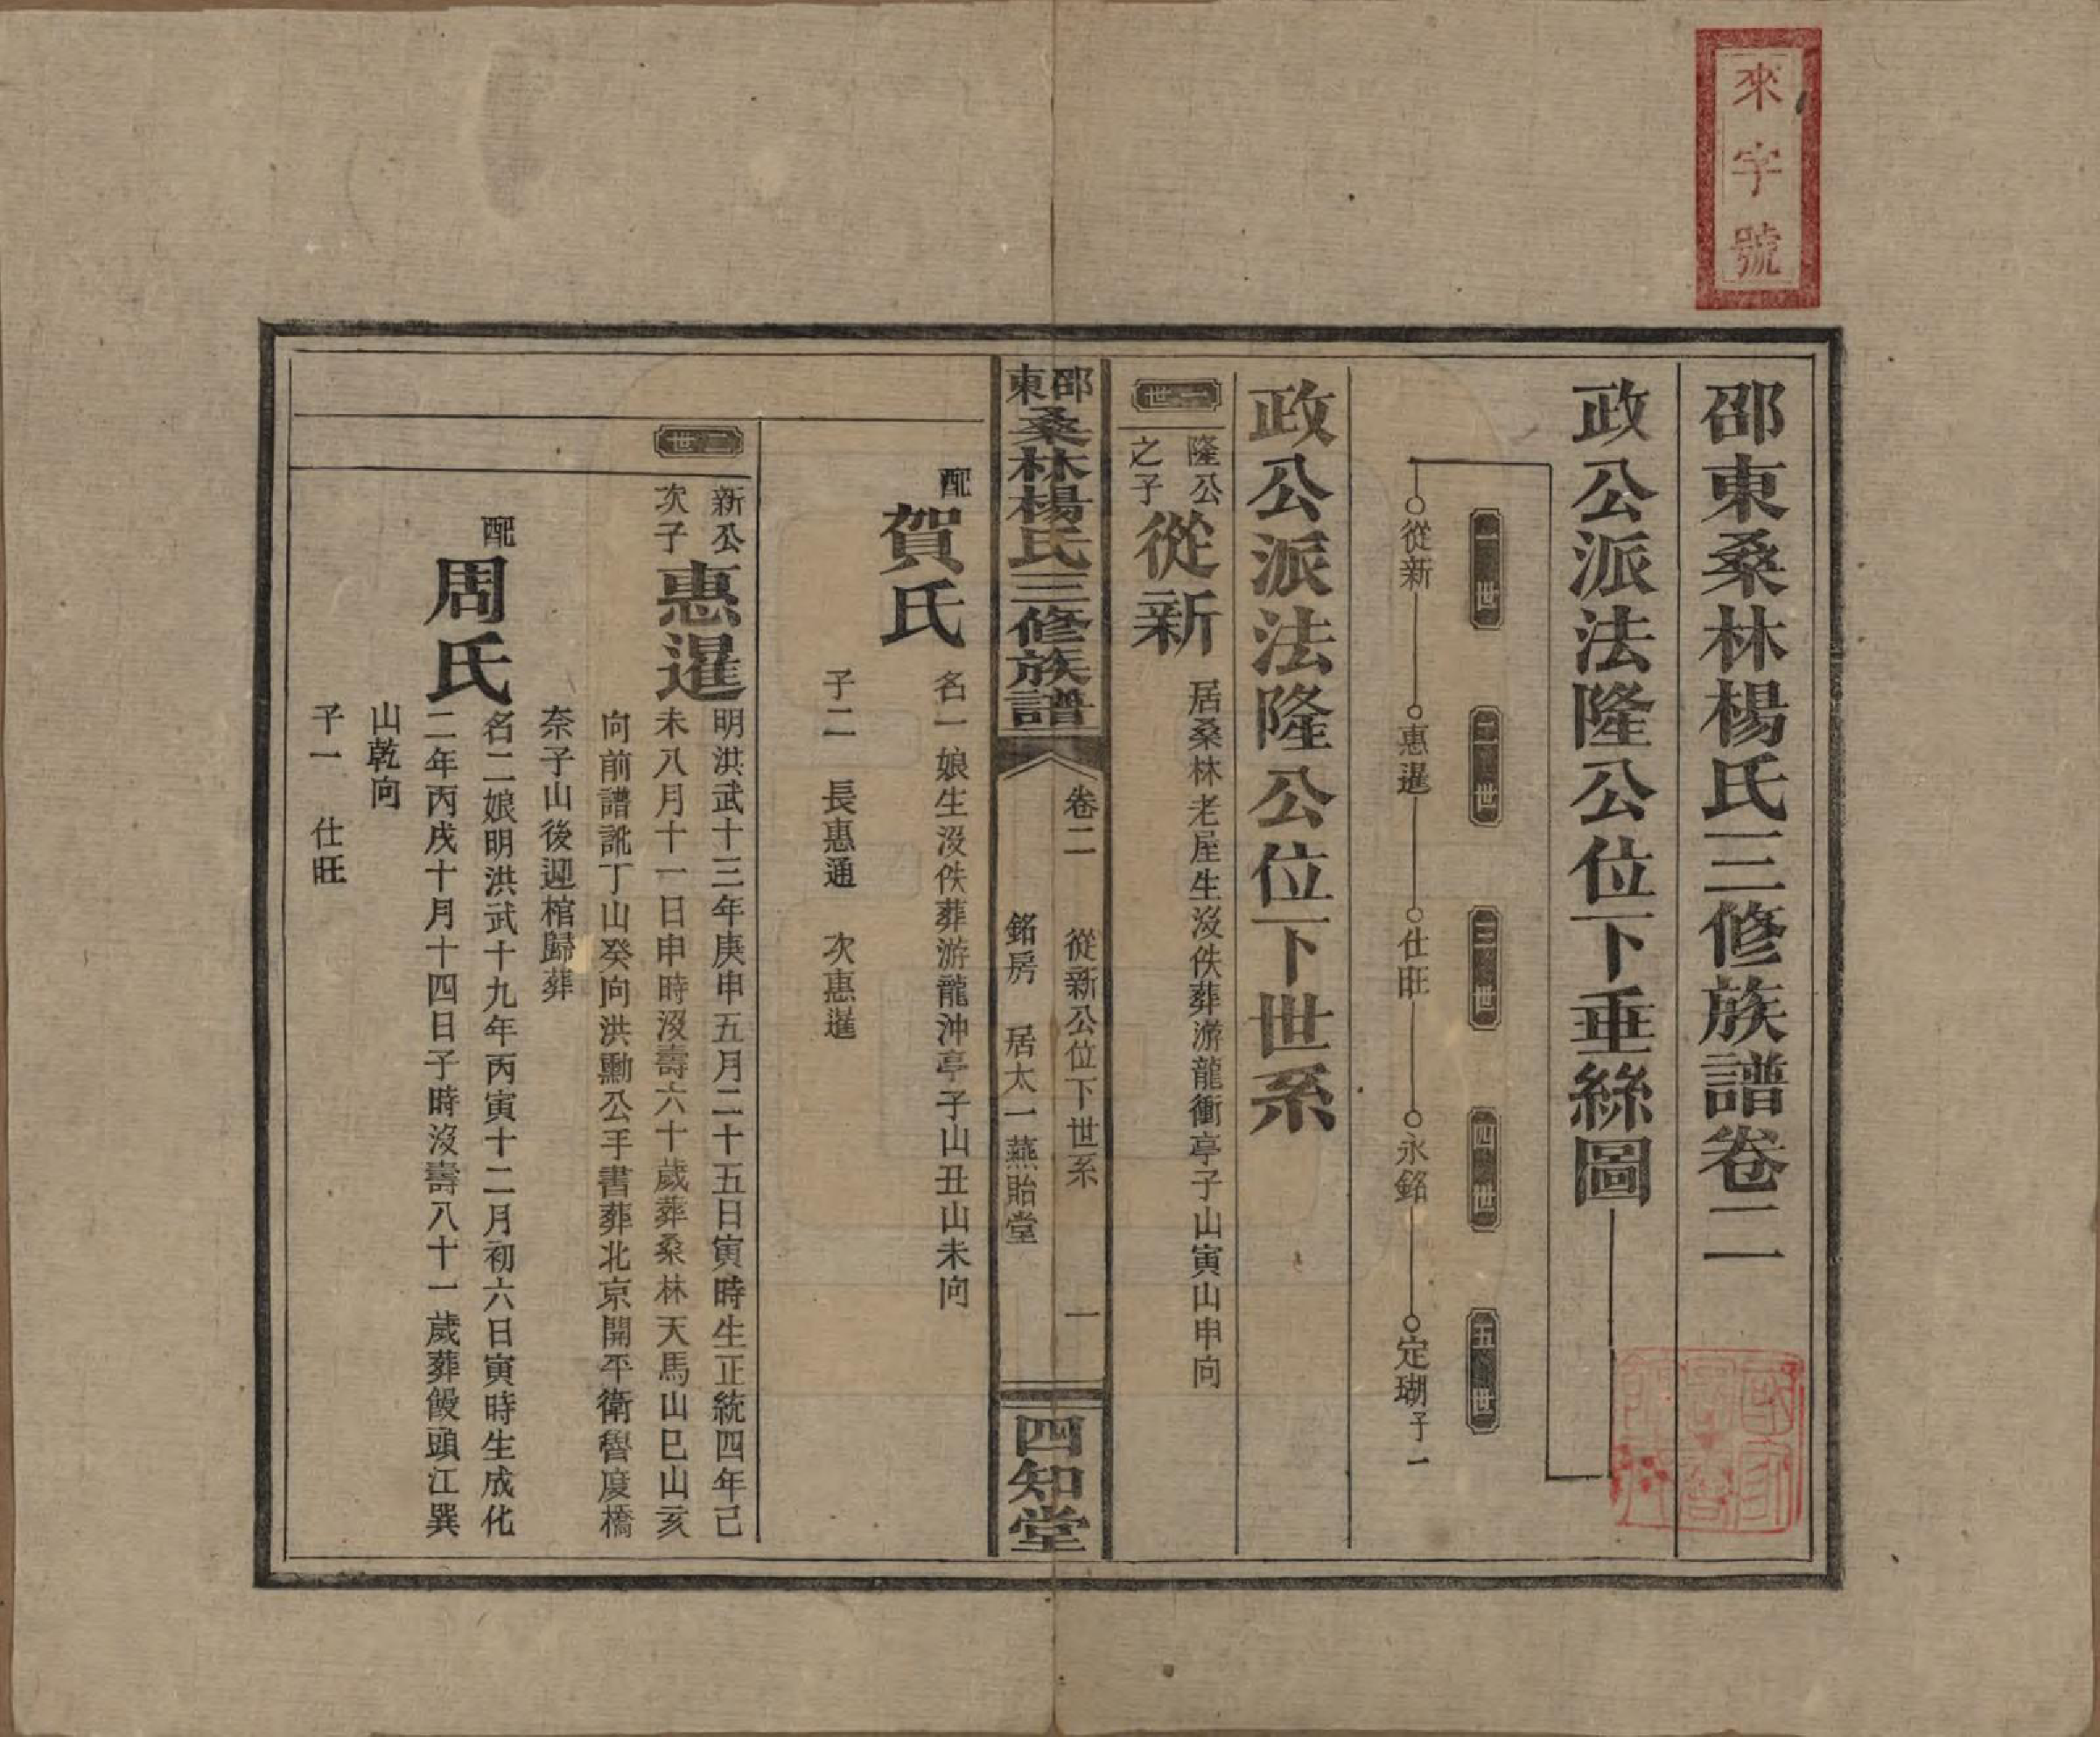 來字號
邵東桑林楊氏三修族譜卷二
政公派法隆公位下垂絲圖
一世
二世
三世
四世
五世
從新
惠暹
仕旺
永銘
定瑚子一
政公派法隆公位下世系
一世
隆公
之子
從新
居桑林老屋生沒佚葬游龍衝亭子山寅山申向
邵東桑林楊氏三修族譜
卷二 從新公位下世系 一
銘房 居太一燕貽堂
四知堂
配賀氏
名一娘生沒佚葬游龍沖亭子山丑山未向
子二 長惠通 次惠暹
二世
新公
次子
惠暹
明洪武十三年庚申五月二十五日寅時生正統四年己
未八月十一日申時沒壽六十歲葬桑林天馬山巳山亥
向前譜訛丁山癸向洪勳公手書葬北京開平衛魯度橋
奈子山後迎棺歸葬
配周氏
名二娘明洪武十九年丙寅十二月初六日寅時生成化
二年丙戌十月十四日子時沒壽八十一歲葬饅頭江巽
山乾向
子一 仕旺